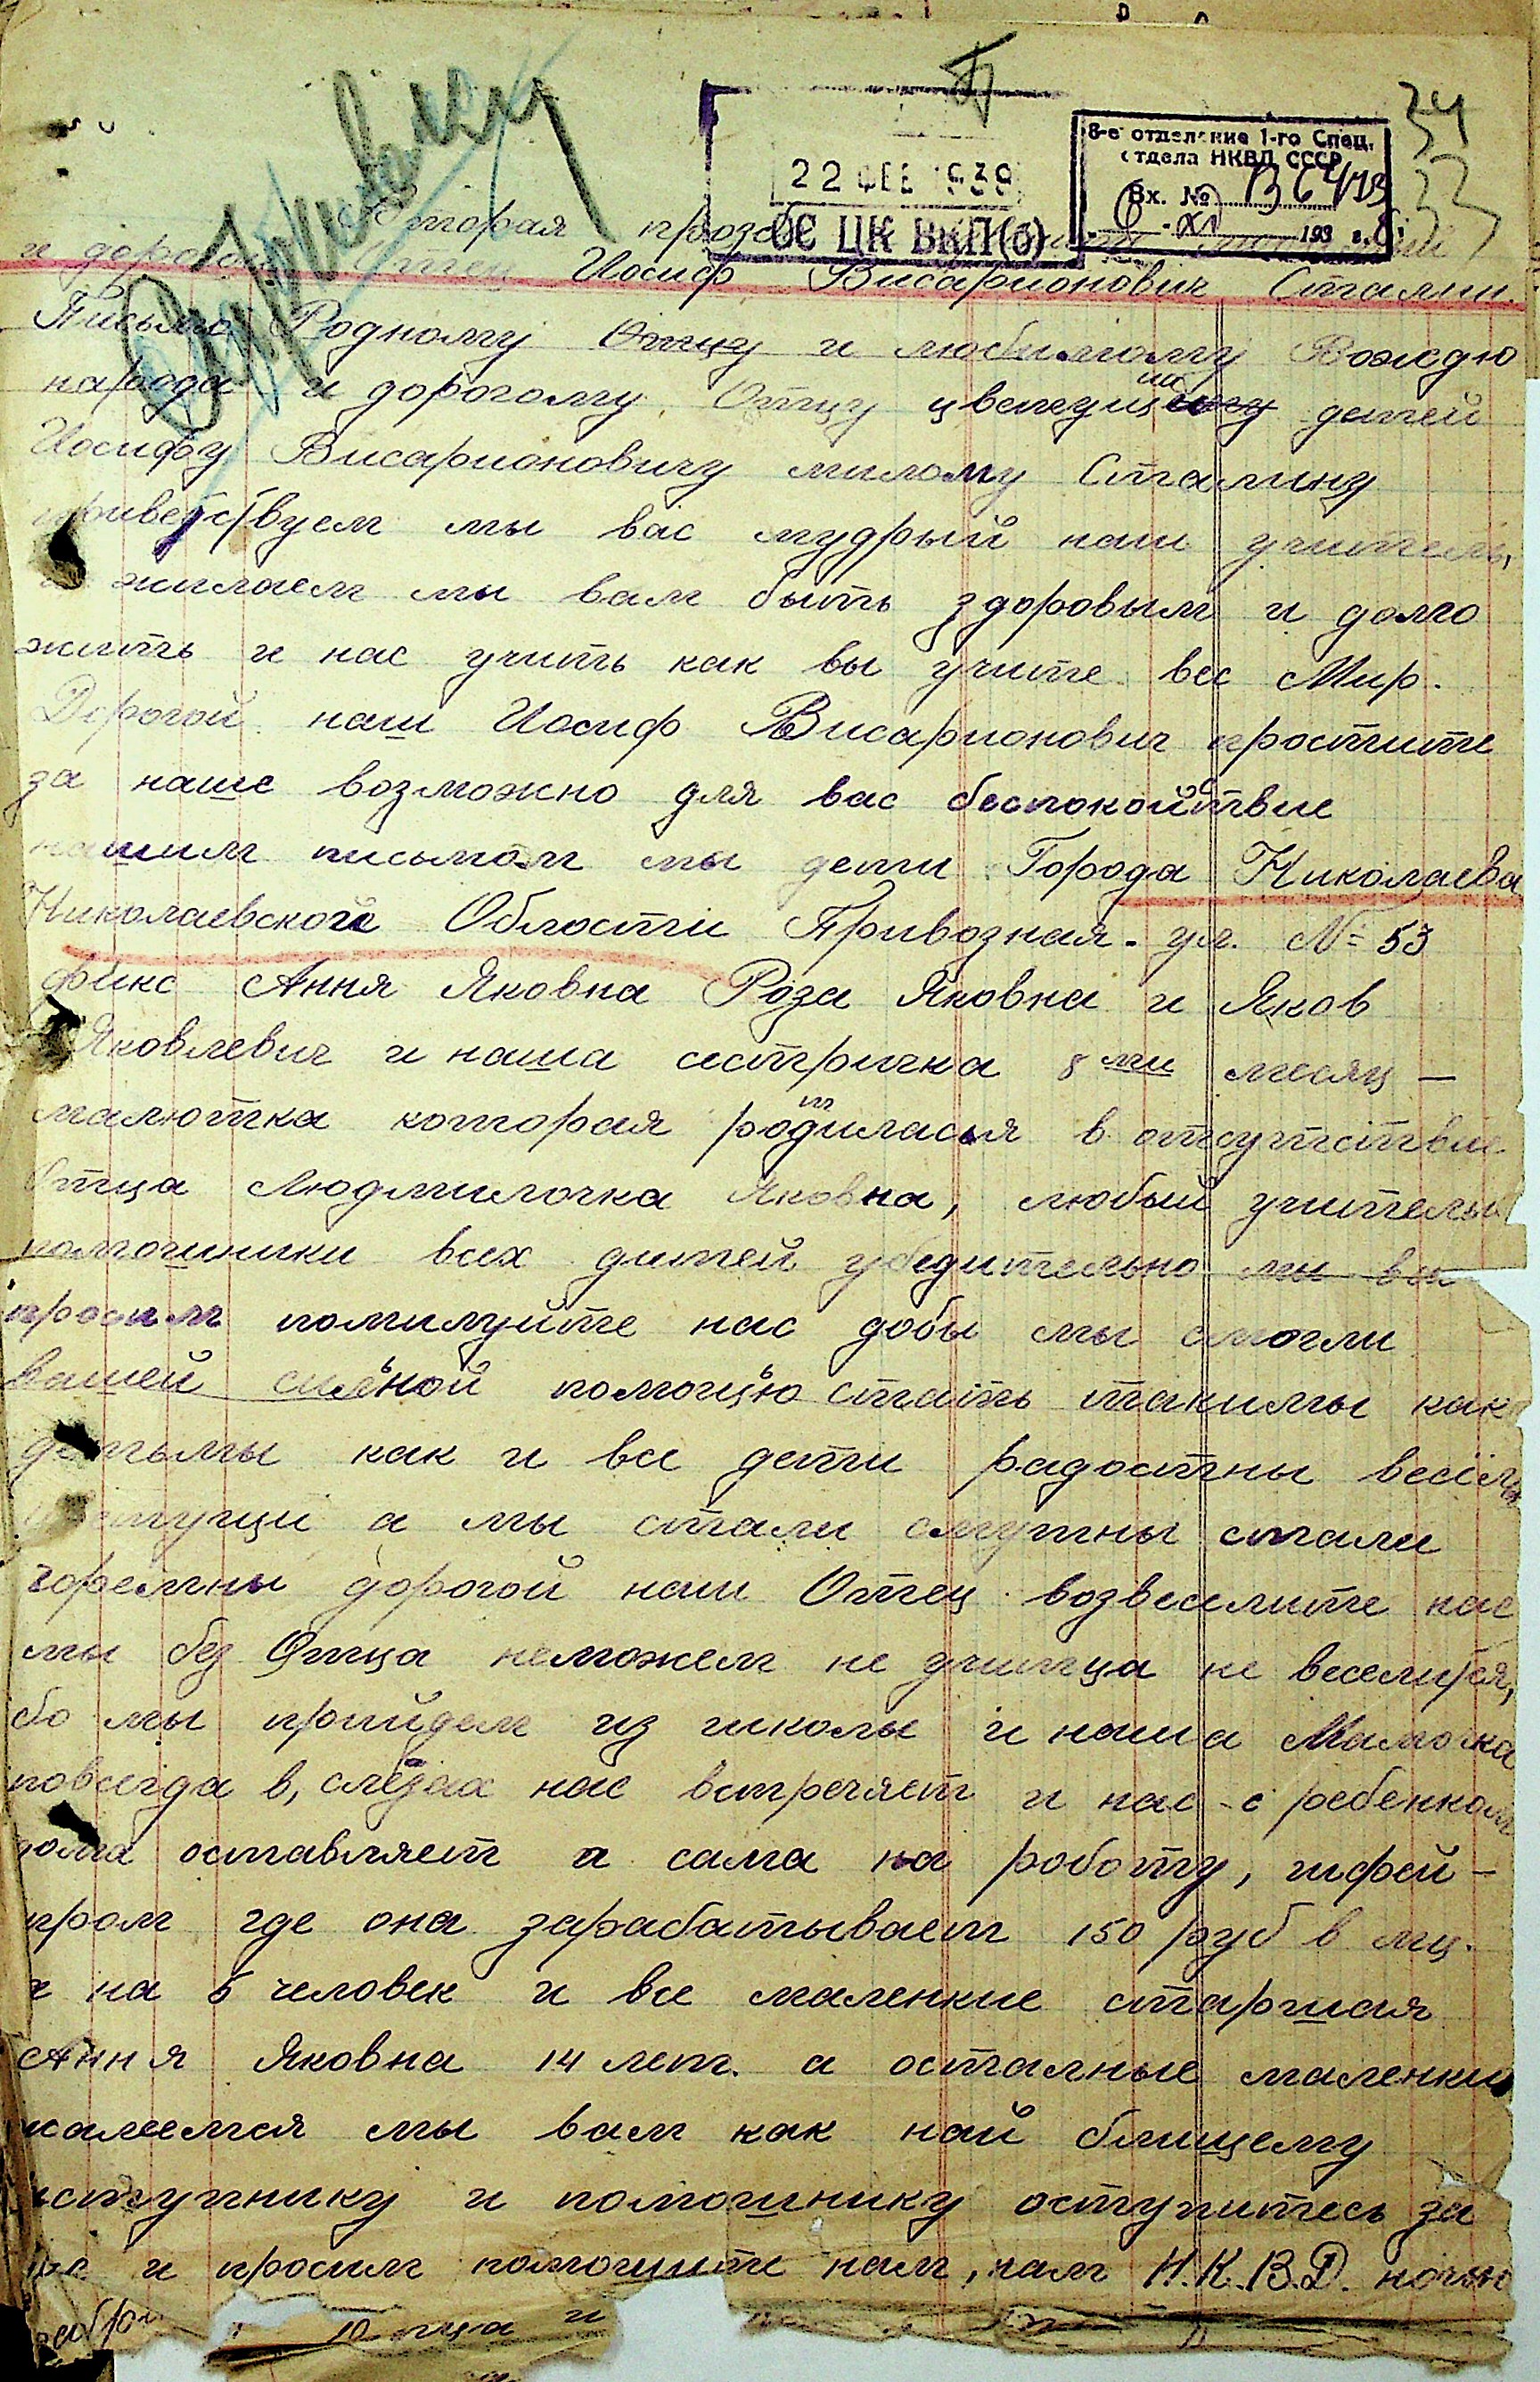 22 ФЕВ 1939
ОС ЦК ВКП(б)
8-е отделение 1-го Спец.
отдела НКВД СССР
Вх. №
193 г.
34
33
Вторая прозба
и дорогой Отец Иосиф Висарионович Сталин.
Письмо Родному Отцу и любимому Вождю
народа и дорогому Отцу цветущих детей
Иосифу Висарионовичу милому Сталину
приветствуем мы вас мудрый наш учитель,
жилаем мы вам быть здоровым и долго
жить и нас учить как вы учите вес Мир.
Дорогой наш Иосиф Висарионович простите
за наше возможно для вас беспокойствие
нашим письмом мы дети Города Николаева
Николаевской Области Привозная ул. № 53
фикс Ання Яковна Роза Яковна и Яков
Яковлевич и наша систричка 8 ми месяц –
малютка которая родиласья в отсутствие
Отца Людмилочка Яковна, любый учитель
помошники всих дитей убедительно мы все
просим помилуйте нас добы мы смогли
вашей сильной помощью стать такимы как
детьмы как и все дети радостны весели
цветущи а мы стали смутны стали
горемны дорогой наш Отец возвеселите нас
мы без Отца неможем не учитца не веселитя,
бо мы прийдем из школы и наша Мамочка
повсигда в, слезах нас встречяет и нас с ребенком
дома оставляет а сама на роботу, шфей –
пром где она зарабатывает 150 руб в мц.
а на 5 человек и все маленкие старшая
Ання Яковна 14 лет. а осталные маленки
жалеемся мы вам как най блищему
иступнику и помошнику оступитесь за
нас и просим помогите нам, нам Н.К.В.Д. ночью